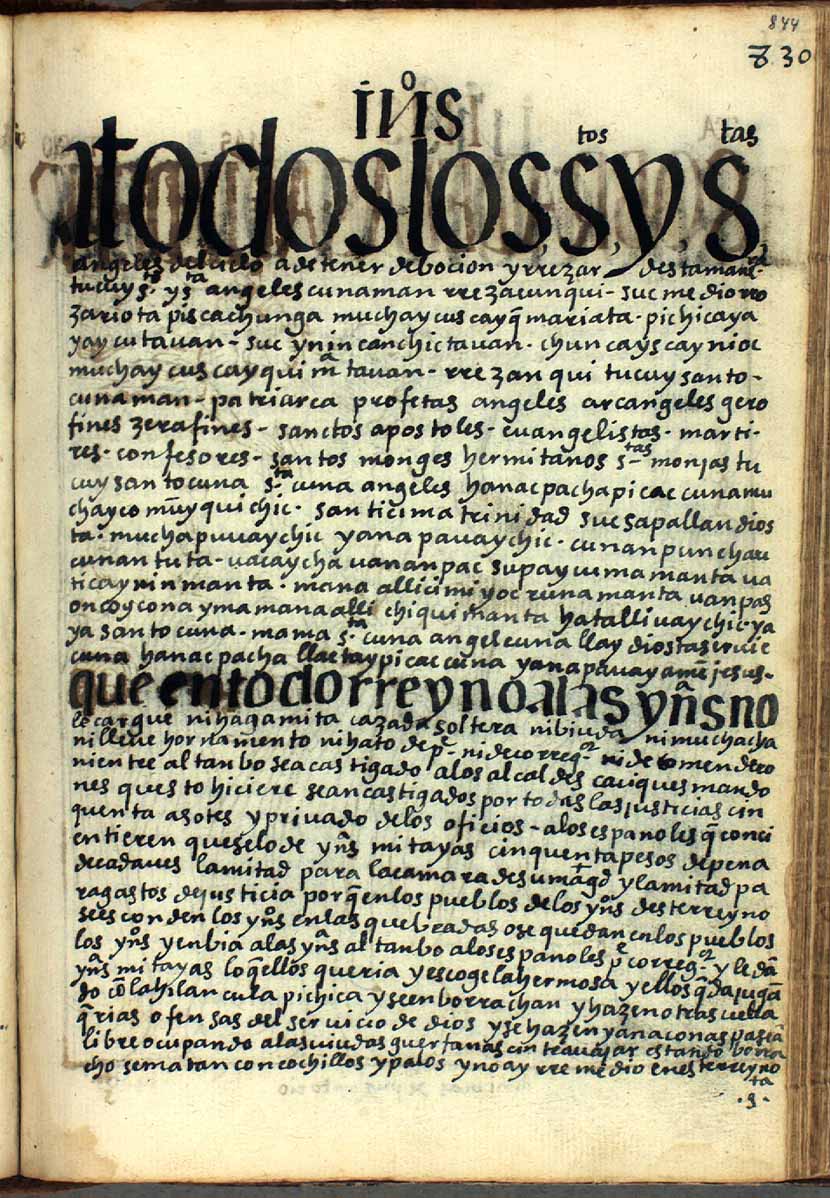 844
830
yns̊
Itodoslos s.tos y s.tas
angeles del cielo a de tener debocion y rrezar destamanera
tucuy s.tos y s.ta angeles cunaman rrezacunqui - suc medio rro
zario ta pis cachunga muchaycuscayq̃ mariata - pichicaya
yaycutavan - suc ynin canchictavan - chuncayscaynioc
muchaycuscayquim̃tavan - rrezanqui tucuy santo -
cunaman - patriarca profetas angeles arcangeles gero
fines zerafines - sanctos apostoles - euangelistas - marti-
res - confesores - santos monges hermitanos s.tas monjas tu
cuy santocuna s.ta cuna angeles hanacpachapicaccunamu
chayco mũyquichic - santicima trinidad suc sapallan dios
ta - muchapuvaychic yanapavaychic - cunan punchau
cunan tuta - uacaychauananpac supaycumamanta ua
ticayninmanta - mana allicimiyoc runamanta uanpas
oncoyconaymamana alli chiquimanta hatallivaychic - ya
ya santocuna - mama s.ta cuna angelcunallay diosta seruic
cuna hanacpacha llactaypicaccuna yanapauay amẽ jesus -
que en todo rreyno a las yñs no
le cargue ni haga mita cazada soltera ni biuda ni muchacha
ni lleue hornamento ni hato de p.e ni de correg.or ni de comendero
ni entre al tanbo sea castigado a los alcaldes caciques mando
nes questo hiciere sean castigados por todas las justicias cin
quenta asotes y priuado de los oficios - a los espanoles q̃ conci
entieren que se lo de yñs mitayas cinquenta pesos de pena
de cada ues la mitad para la camara de su mag.d y la mitad pa
ra gastos de justicia porq̃ en los pueblos de los yn̊s desterreyno
se esconden los yn̊s en las quebradas o se quedan en los pueblos
los yn̊s y enbia a las yñs al tanbo a los espanoles p.e correg.or y le dã
yñs mitayas lo q̃ ellos queria y escoge la hermosa y ellos q̃da jugã
do cõ la hilancula pichica y se enborrachan y hazen otras uella
q̃rias ofensas del seruicio de dios y se hazen yanaconas paseã
libre ocupando a las uiudas guerfanas cin trauajar estando borra
cho se matan con cochillos y palos y no ay rremedio en esterreyno
ta
.s.